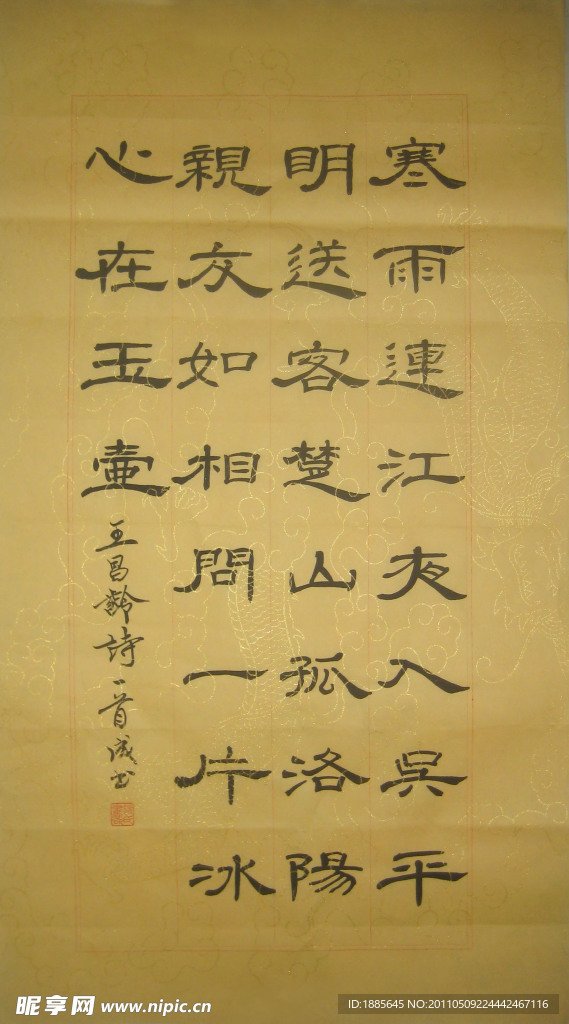 寒雨連江夜入吳平
明送客楚山孤洛陽
親友如相問一片冰
心在玉壺
王昌齡詩一首成书
昵享网 www.nipic.cn
ID:1885645 NO:20110509224442467116